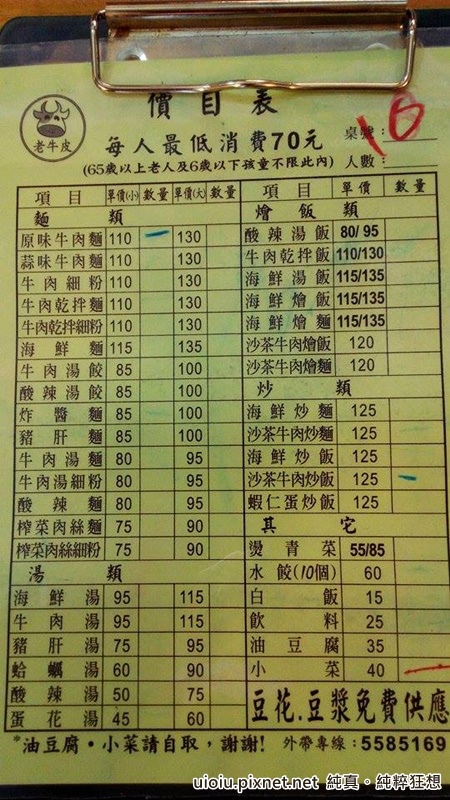 價目表
16
老牛皮
每人最低消費70元
桌號:
(65歲以上老人及6歲以下孩童不限此內)
人數:
項目 單價(小) 數量 單價(大) 數量
麵類
原味牛肉麵 110 130
蒜味牛肉麵 110 130
牛肉細粉 110 130
牛肉乾拌麵 110 130
牛肉乾拌細粉 110 130
海鮮麵 115 135
牛肉湯餃 85 100
酸辣湯餃 85 100
炸醬麵 85 100
豬肝麵 85 100
牛肉湯麵 80 95
牛肉湯細粉 80 95
酸辣麵 80 95
榨菜肉絲麵 75 90
榨菜肉絲細粉 75 90
湯類
海鮮湯 95 115
牛肉湯 95 115
豬肝湯 75 95
蛤蠣湯 60 90
酸辣湯 50 75
蛋花湯 45 60
項目 單價 數量
燴飯類
酸辣湯飯 80/95
牛肉乾拌飯 110/130
海鮮湯飯 115/135
海鮮燴飯 115/135
海鮮燴麵 115/135
沙茶牛肉燴飯 120
沙茶牛肉燴麵 120
炒類
海鮮炒麵 125
沙茶牛肉炒麵 125
海鮮炒飯 125
沙茶牛肉炒飯 125
蝦仁蛋炒飯 125
其它
燙青菜 55/85
水餃(10個) 60
白飯 15
飲料 25
油豆腐 35
小菜 40
豆花.豆漿免費供應
*油豆腐・小菜請自取,謝謝!
外帶專線:5585169
uioiu.pixnet.net 純真・純粹狂想